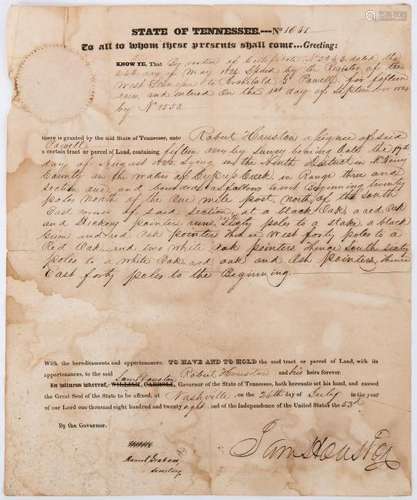 STATE OF TENNESSEE.—No 1031
To all to whom these presents shall come...Greeting:
KNOW YE, That By virtue of Certificate dated the
day of May issued by the Registry of
West Tennessee to Powell for fifteen
acres and entered on the 1st day of September
by No 1552
there is granted by the said State of Tennessee, unto Robert Houston assignee of said
Powell
a certain tract or parcel of Land, containing fifteen acres by survey bearing date the
day of August lying in the District
County on the waters of Creek in Range three and
section one and bounded as follows Beginning twenty
poles North of the one mile post, north of the South
East corner of said section, at a black Oak a red Oak
and Hickory pointers runs sixty poles to a stake a black
Gum and red Oak pointers thence West forty poles to a
Red Oak and two white oak pointers thence South sixty
poles to a white Oak and Ash pointers, thence
East forty poles to the Beginning
With the hereditaments and appurtenances. TO HAVE AND TO HOLD the said tract or parcel of Land, with its
appurtenances, to the said Robert Houston and his heirs forever.
Sam Houston
In witness whereof, WILLIAM CARROLL, Governor of the State of Tennessee, hath hereunto set his hand, and caused
the Great Seal of the State to be affixed, at Nashville on the day of July in the year
of our Lord one thousand eight hundred and twenty eight and of the Independence of the United States the 53d
By the Governor.
Sam Houston
Daniel Graham
Secretary